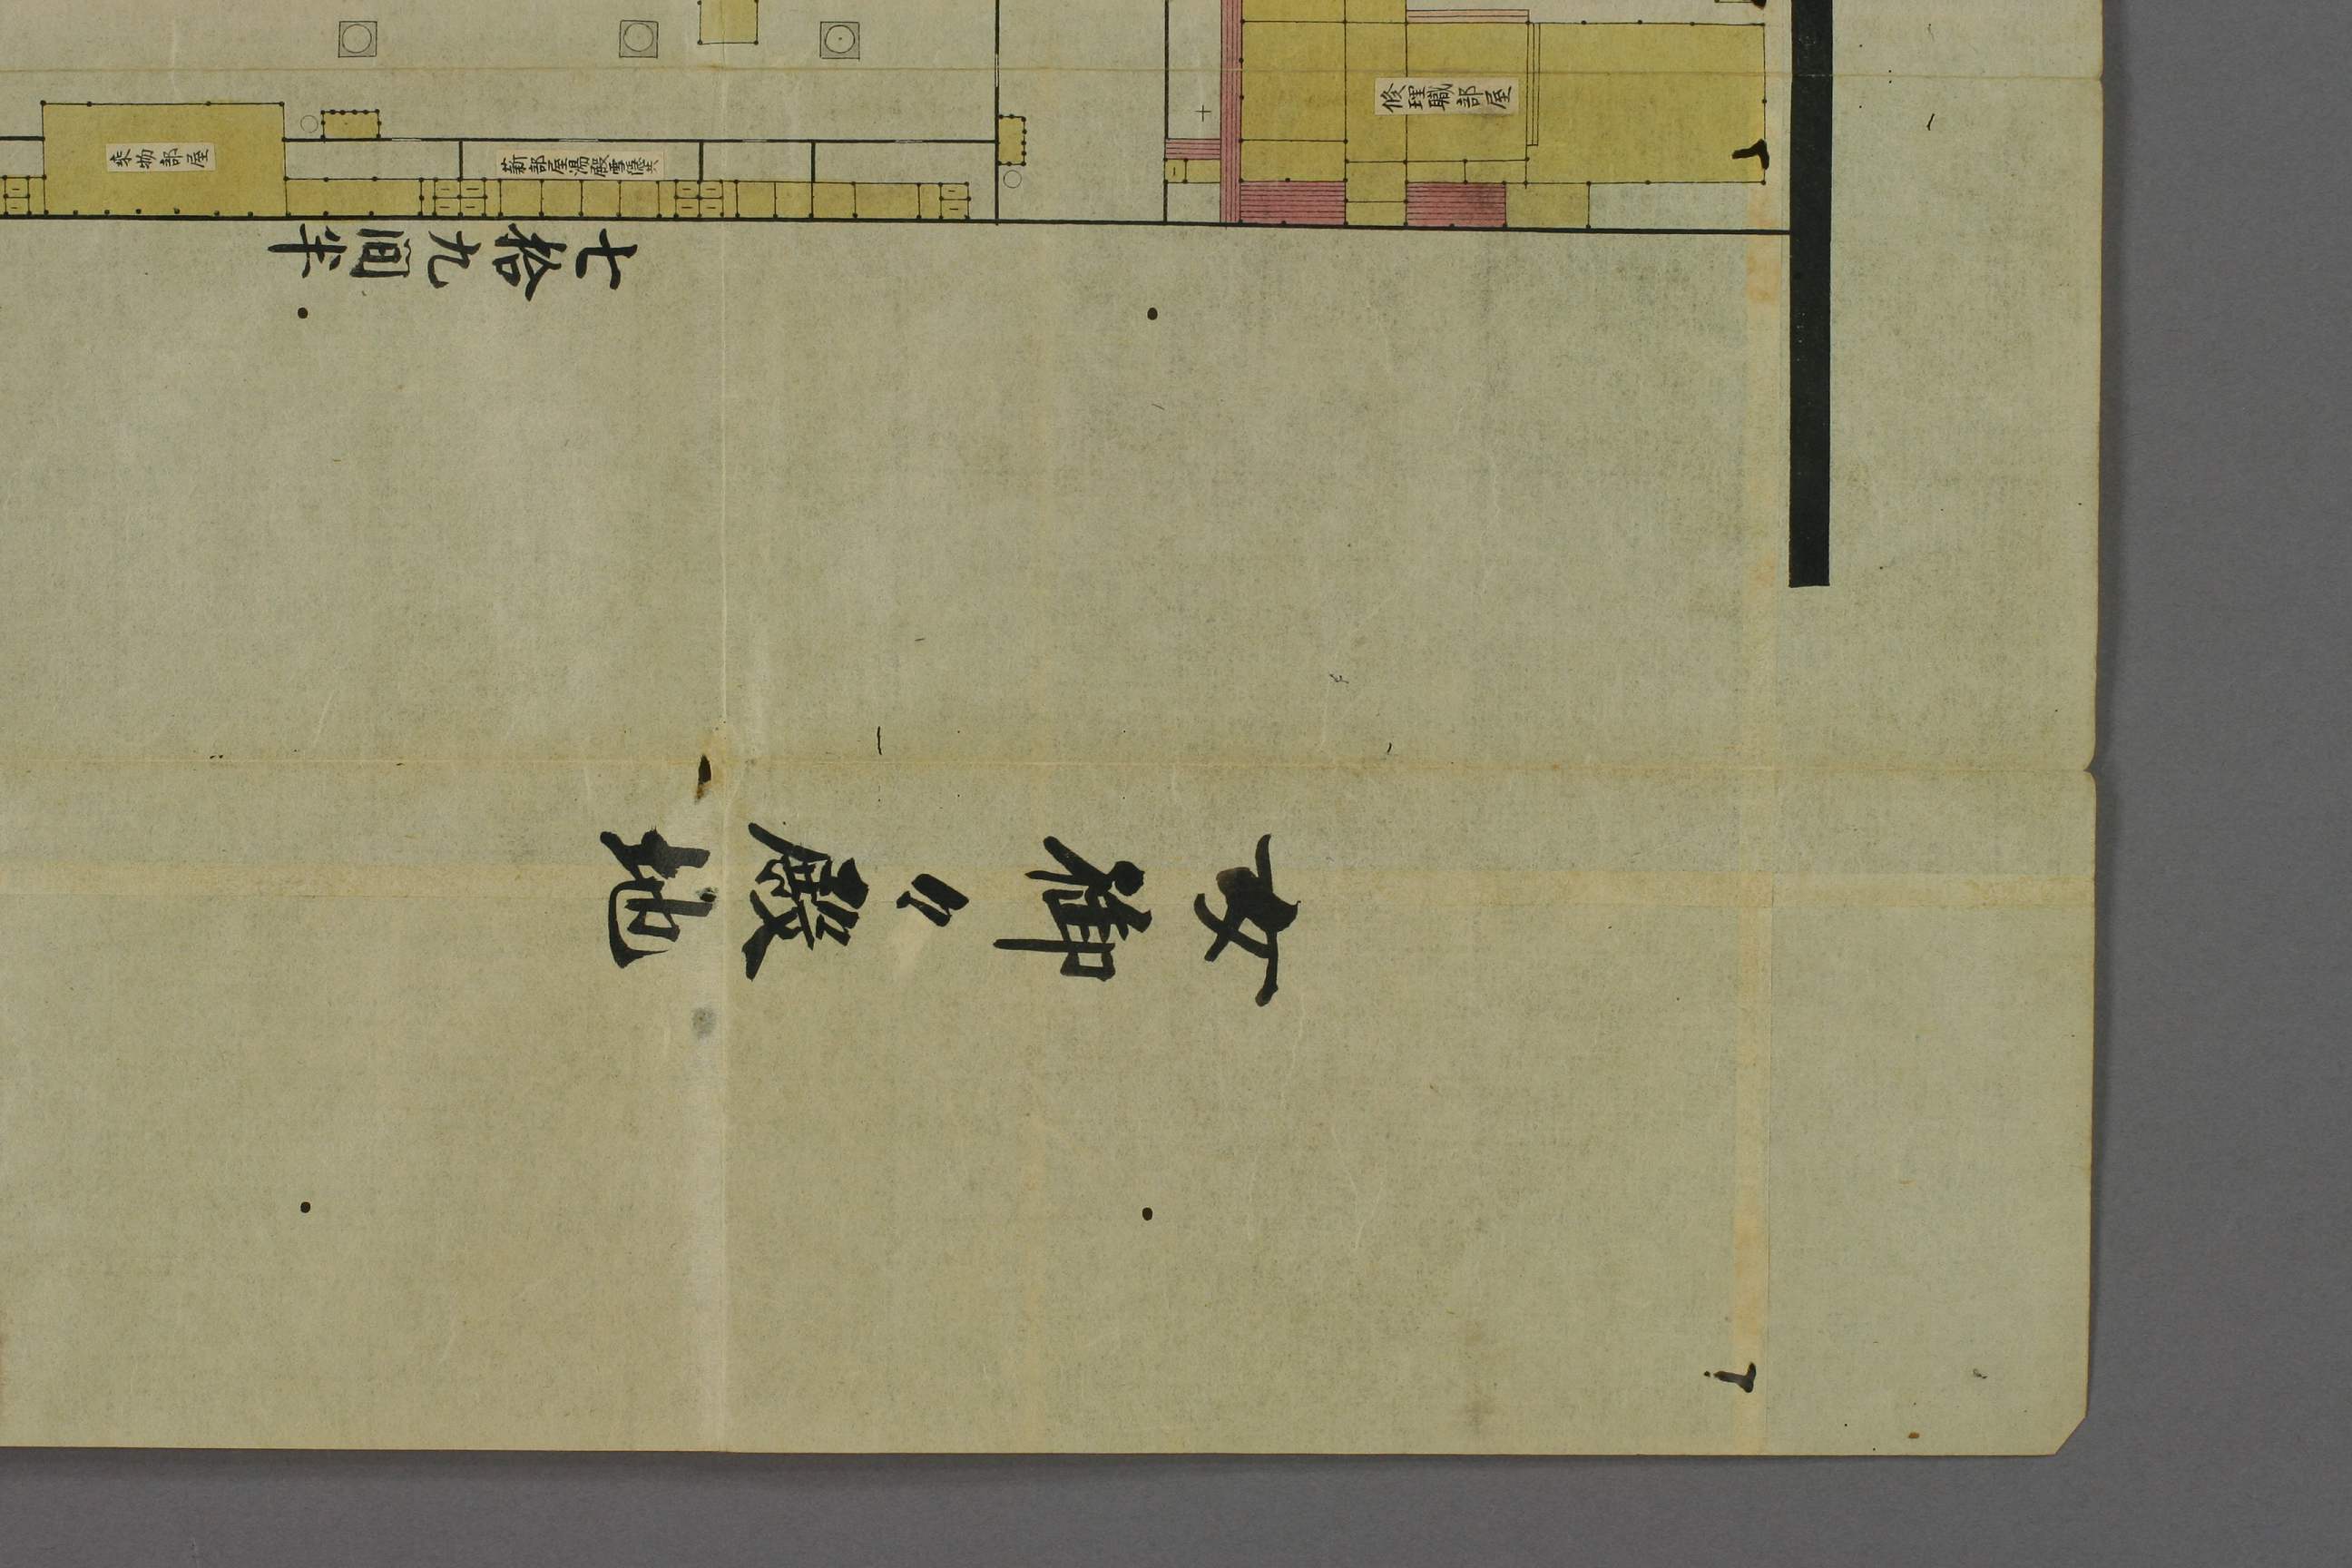 修理職部屋
乗物部屋
薪部屋湯殿雪隠共
七拾九間半
女御〃殿地